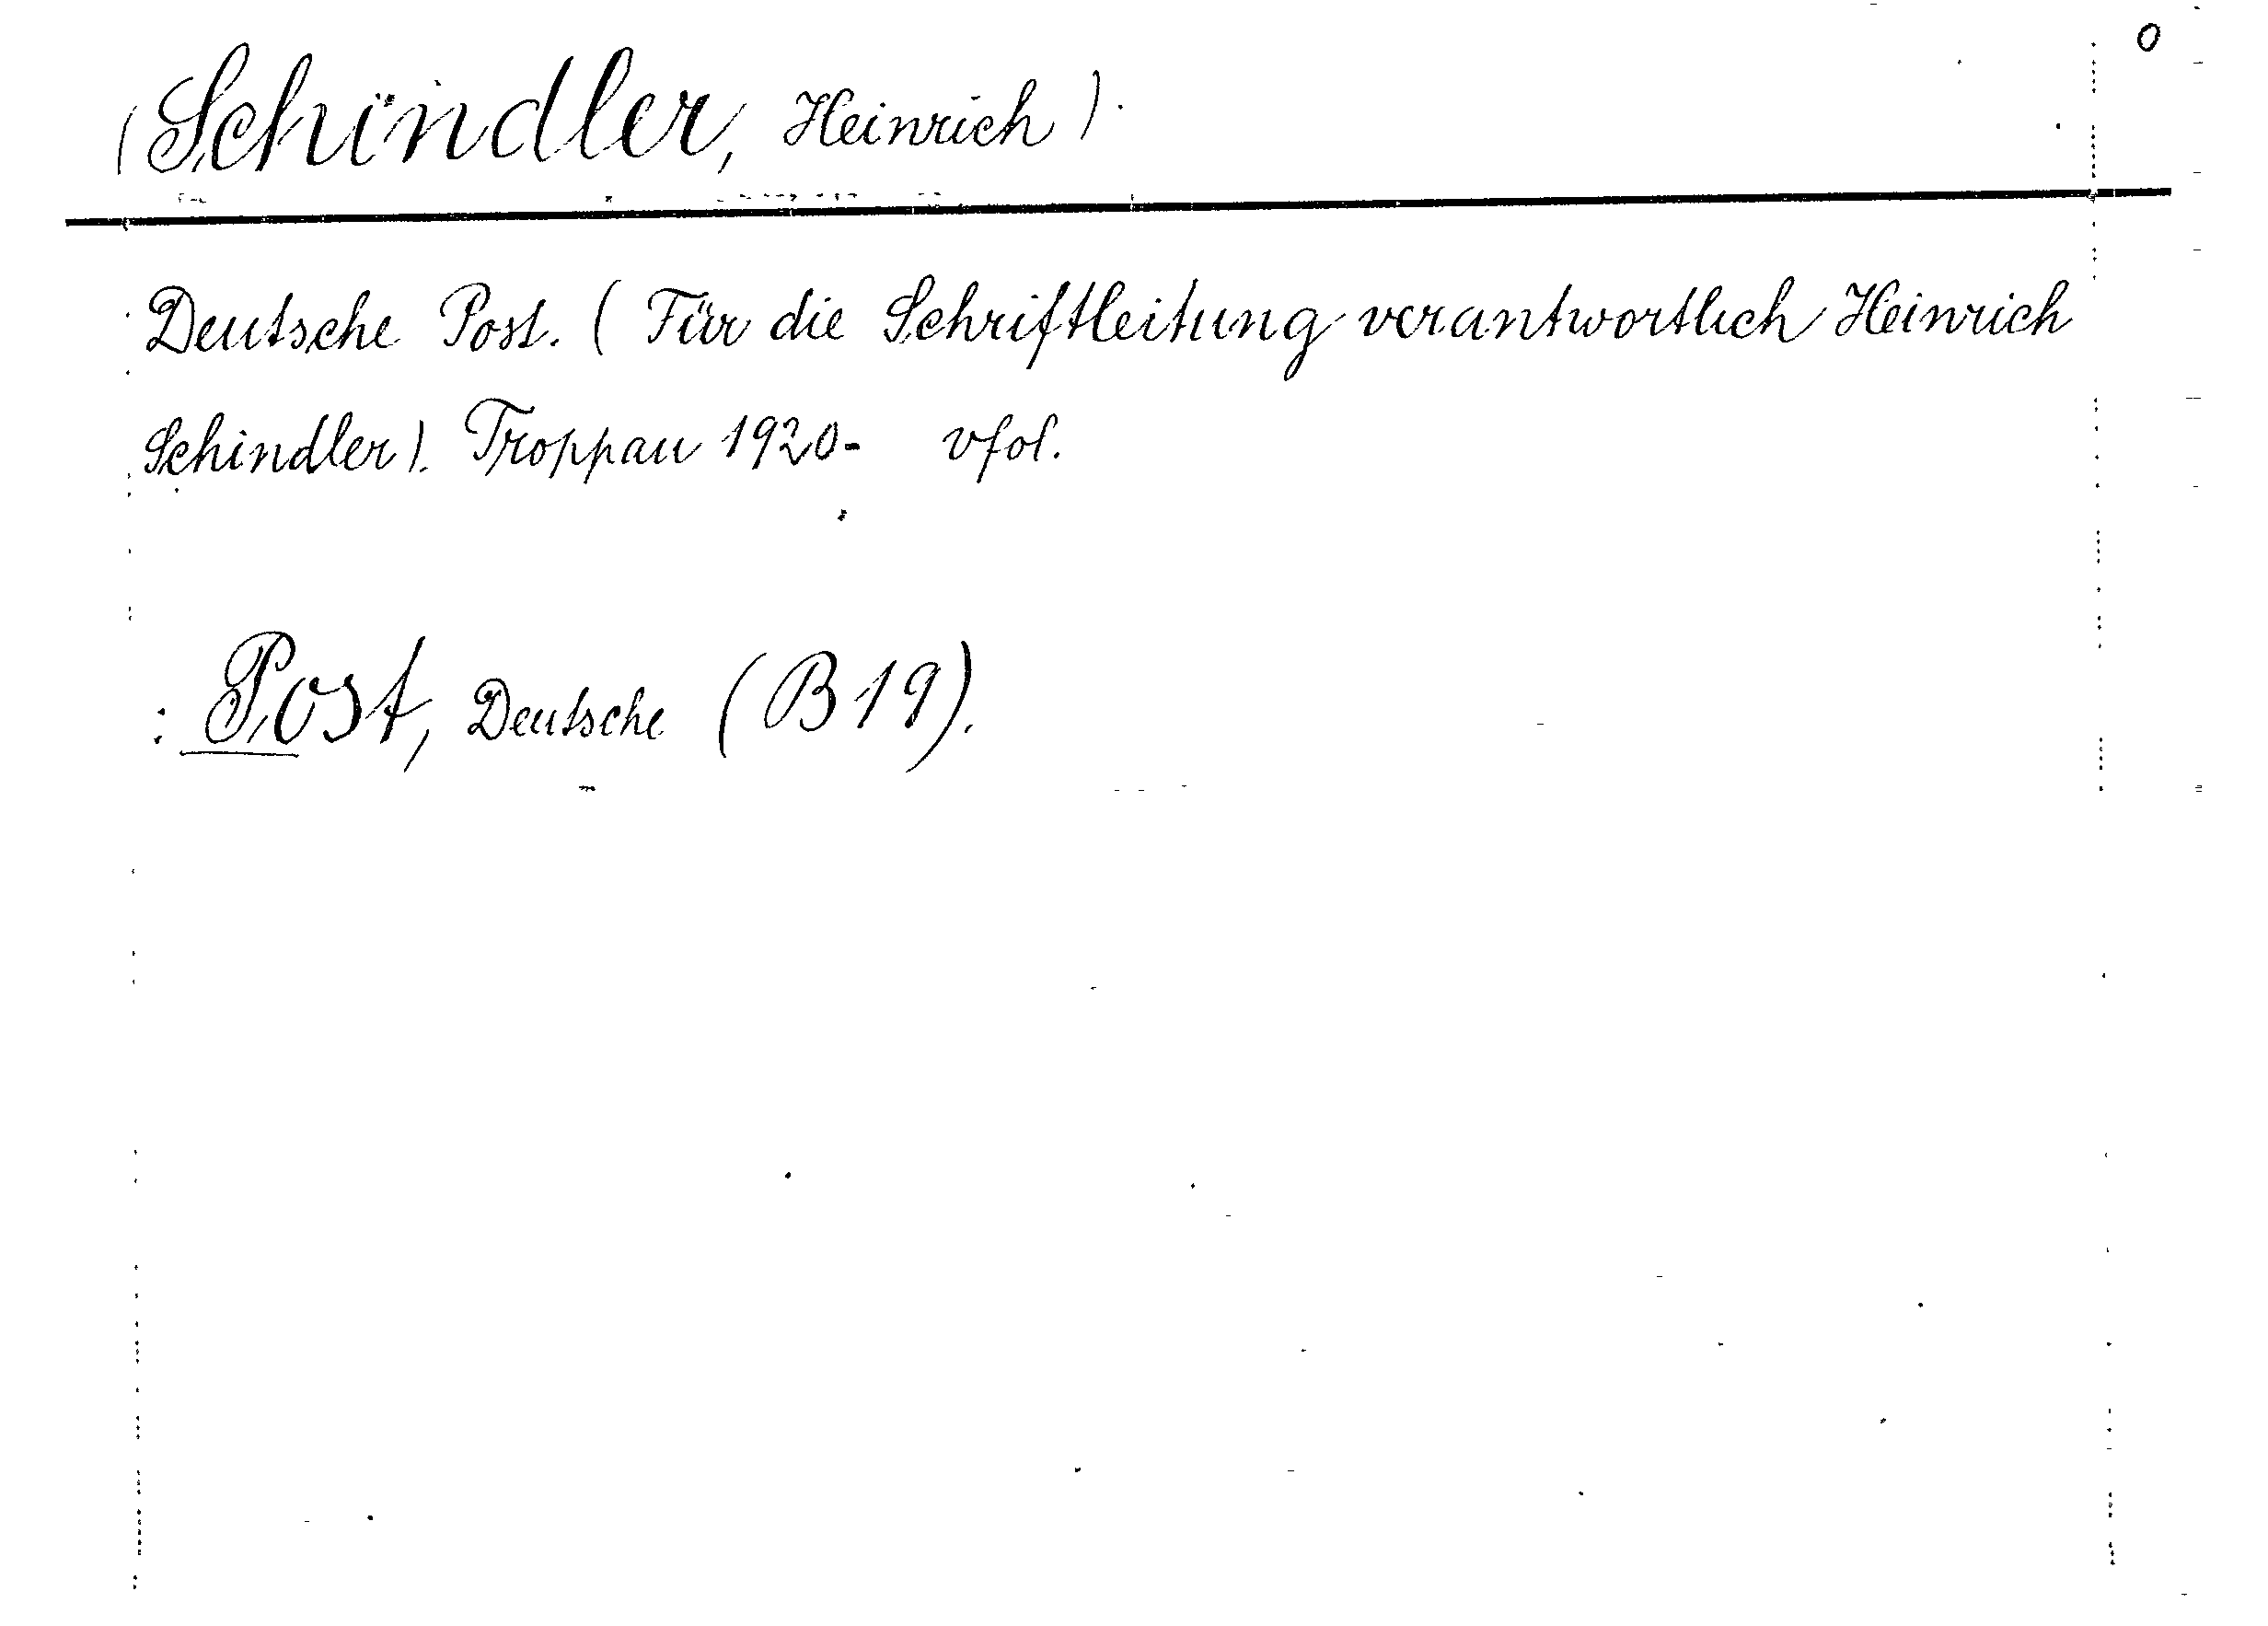 0
(Schindler, Heinrich).
Deutsche Post. (Für die Schriftleitung verantwortlich Heinrich
Schindler). Troppau 1920- vfol.
: Post, Deutsche (B 19).